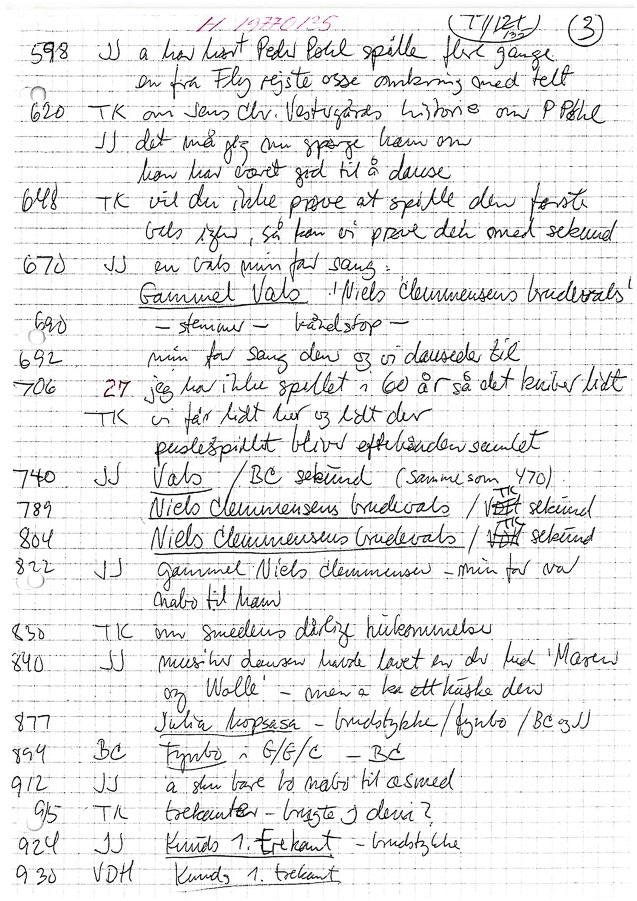 H. 19770135
T1/12t 132
3
598 JJ a har hørt Peder Pøhl spille flere gange
en fra Fly rejste osse omkring med telt
620 TK om Jens Chr. Vestergårds historie om P Pøhl
JJ det må jeg nu spørge ham om
han har været god til å danse
648 TK vil du ikke prøve at spille den første
vals igen, så kan vi prøve den med sekund
670 JJ en vals min far sang:
Gammel Vals 'Niels Clemmensens brudevals'
690 - stemmer - båndstop -
692 min far sang den og vi dansede til
706 27 jeg har ikke spillet i 60 år så det kniber lidt
TK vi får lidt her og lidt der
puslespillet bliver efterhånden samlet
740 JJ Vals / BC sekund (samme som 470)
789 Niels Clemmensens brudevals / TK sekund
804 Niels Clemmensens brudevals / TK sekund
822 JJ gammel Niels Clemmensen - min far var
nabo til ham
830 TK om smedens dårlige hukommelse
840 JJ musiker dansen havde lavet en der hed 'Maren
og Wolle' - men a ka ett huske den
877 Julia hopsasa - brudstykke / fynbo / BC og JJ
894 BC Fynbo i G/G/C - BC
912 JJ a sku bare bo nabo til
915 TK trekanter - brugte I dem?
924 JJ Knuds 1. trekant - brudstykke
930 VDH Knuds 1. trekant